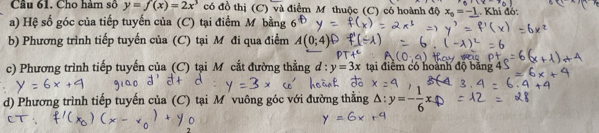 Câu 61. Cho hàm số y = f(x) = 2x³ có đồ thị (C) và điểm M thuộc (C) có hoành độ x₀ = -1. Khi đó:
a) Hệ số góc của tiếp tuyến của (C) tại điểm M bằng 6 Đ y = f(x) = 2x³ => y' = f'(x) = 6x²
b) Phương trình tiếp tuyến của (C) tại M đi qua điểm A(0;4) Đ f'(-1) = 6.(-1)² = 6
PTtt A(0,4) thay vào pt 6(x+1)+4
c) Phương trình tiếp tuyến của (C) tại M cắt đường thẳng d: y = 3x tại điểm có hoành độ bằng 4 S = 6x+4
: y = 6x+4 giao đ' d: y = 3x có hoành độ x = 4, 3.4 = 6.4+4
d) Phương trình tiếp tuyến của (C) tại M vuông góc với đường thẳng Δ: y = -1/6 x. Đ = 12 = 28
CT: f'(x₀)(x - x₀) + y₀ y = 6x+4